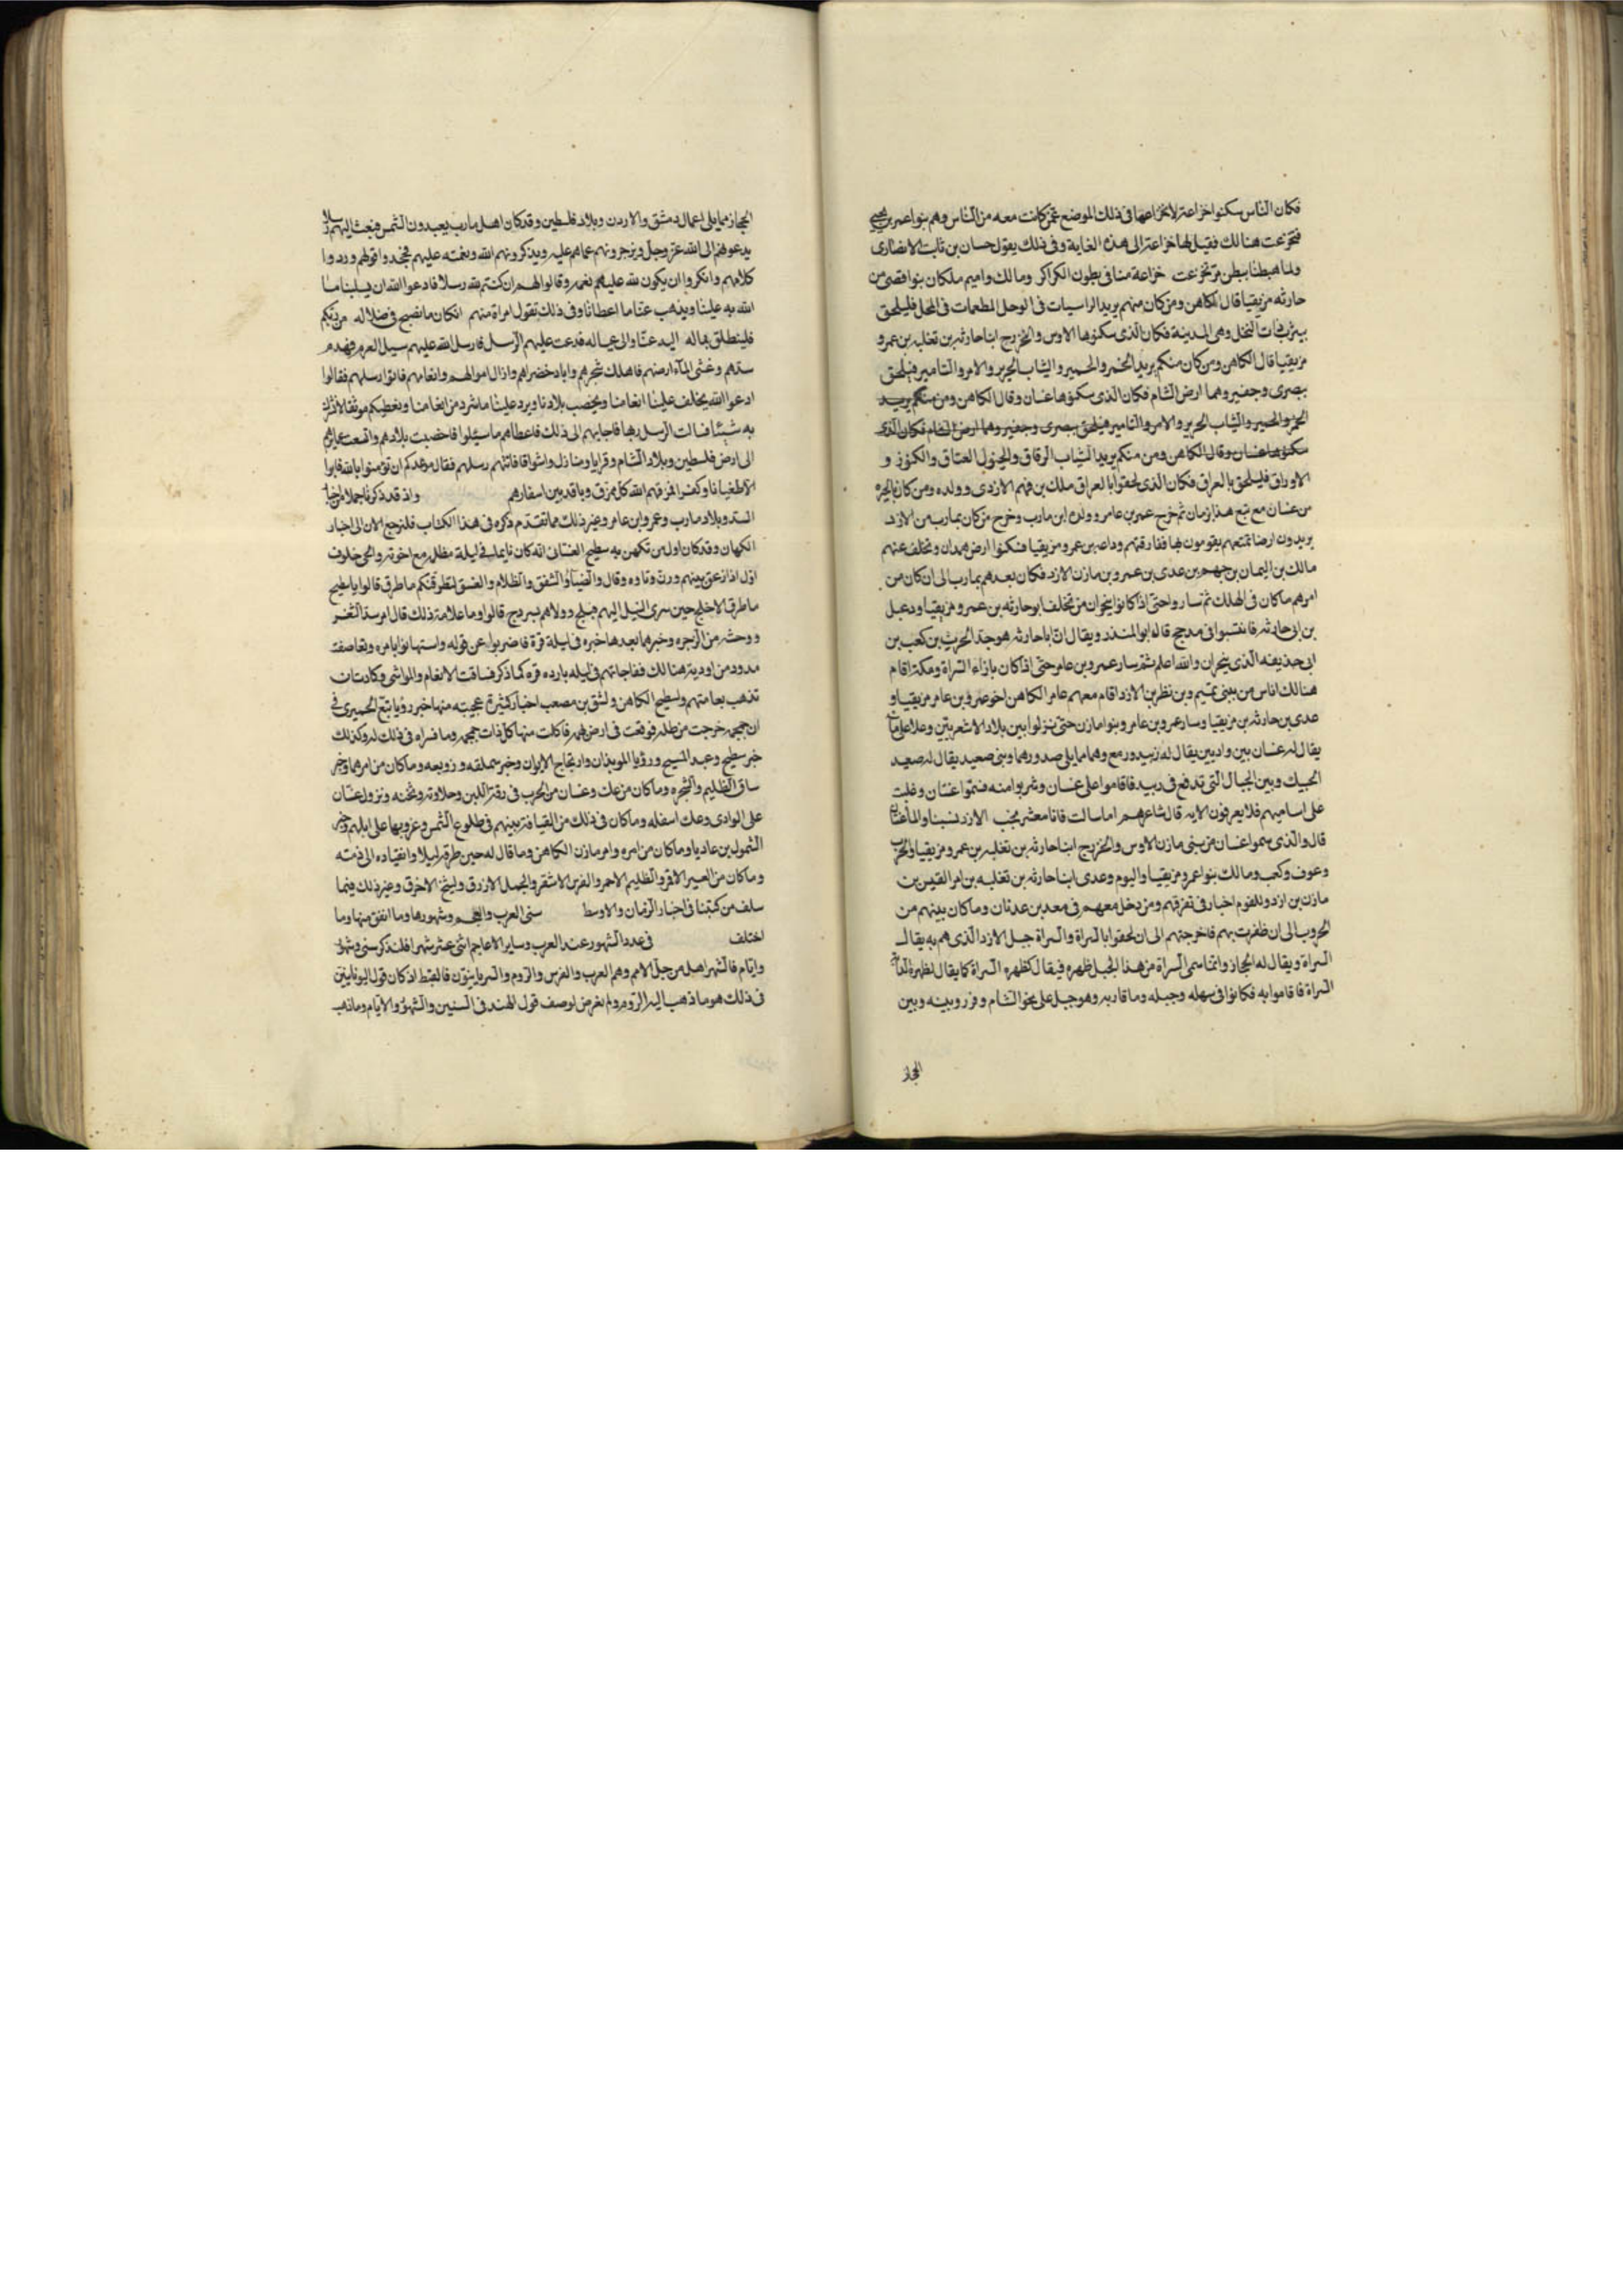 فكان الناس سكنوا خزاعة لانخزاعها فى ذلك الموضع عمن كانت معه من الناس وهم بنوا عمر بن لحى
فتخزعت هنالك فقيل لها خزاعة الى هذه الغاية وفى ذلك يقول حسان بن ثابت الانصارى
ولما هبطنا بطن مر تخزعت خزاعة منا فى بطون الكراكر ومالك واميم ملكان بنوا قصى من
حارثه مزيقيا قال الكاهن ومن كان منهم يريد الراسيات فى الوحل المطعمات فى المحل فليلحق
بيثرب ذات النخل وهى المدينة فكان الذى سكنوها الاوس والخزرج ابنا حارثه بن ثعلبه بن عمرو
مزيقيا قال الكاهن ومن كان منكم يريد الخمر والخمير والثياب الحرير والامر والتامير فيلحق
بصرى وجفير وهما ارض الشام فكان الذى سكنوها غسان وقال الكاهن ومن منكم يريد
الخمر والخمير والثياب الحرير والامر والتامير فيلحق ببصرى وجفير وهما ارض الشام فكان الذى
سكنوها غسان وقال الكاهن ومن منكم يريد الثياب الرقاق والخيول العتاق والكنوز و
الاوراق فليلحق بالعراق فكان الذى لحقوا بالعراق ملك بن فهم الازدى وولده ومن كان بالحيره
من غسان مع تبع هذا زمان ثم خرج عمر بن عامر وولده ابن مارب وخرج من كان بمارب من الازد
يريدون ارضا تمتعهم يقومون بها ففارقتهم وداعه بن عمرو مزيقيا فسكنوا ارض همدان وتخلف عنهم
مالك بن اليمان بن جهم بن عدى بن عمرو بن مازن الازد فكان بعدهم بمارب الى ان كان من
امرهم ما كان فى الهلك ثم ساروا حتى اذا كانوا بنجران من تخلف ابو حارثه بن عمرو مزيقيا ودعبل
بن ابى حارثه فانتسبوا فى مدحج قاله ابو المنذر ويقال ان ابا حارثه هو جد الحريث بن كعب بن
ابى حذيفه الذى بنجران والله اعلم ثم سار عمرو بن عامر حتى اذا كان بازاء السراة ومكة اقام
هنالك اناس من بنى تميم وبن نظر بن الازد اقام معهم عامر الكاهن اخو عمرو بن عامر مزيقيا و
عدى بن حارثه بن مزيقيا وسار عمرو بن عامر وبنوا مازن حتى نزلوا بين بلاد الاشعريين وعلا على ماء
يقال له غسان بين واديين يقال له زبيد ورمع وهما مما يلى صدورهما وبنى صعيد يقال له صعيد
الحيك وبين الجبال التى تدفع فى زبيد فاقاموا على غسان وشربوا منه فسموا غسان وغلبت
على اساميهم فلا يعرفون الا به قال شاعرهم اما سالت فانا معشر نجب الازد نسبنا والماء غسان
قال والذى سموا غسان من بنى مازن الاوس والخزرج ابنا حارثه بن ثعلبه بن عمرو مزيقيا
وعوف وكعب ومالك بنوا عمرو مزيقيا واليوم وعدى ابنا حارثه بن ثعلبه بن امر القيس بن
مازن بن ازد وللقوم اخبار فى تفرقهم ومن دخل معهم فى معد بن عدنان وما كان بينهم من
الحروب الى ان ظفرت بهم فاخرجتهم الى ان لحقوا بالسراة والسراة جبل الازد الذى هم به يقال
السراة ويقال له الحجاز وانما سمى السراة من هذا الجبل ظهره فيقال كظهره السراة كما يقال لظهر الدابة
السراة فاقاموا به فكانوا فى سهله وجبله وما قاربه وهو جبل على نحو الشام وفرز وبينه وبين
الحجاز
الحجاز مما يلى اعمال دمشق والاردن وبلاد فلسطين وقد كان اهل مارب يعبدون الشمس فبعث اليهم رسلا
يدعوهم الى الله عز وجل وزجرونهم عما هم عليه ويذكرونهم الله ونعمته عليهم فجحدوا قولهم وردوا
كلامهم وانكروا ان يكون لله عليهم نعمه وقالوا لهم ان كنتم لله رسلا فادعوا الله ان يسلبنا ما
الله به علينا ويذهب عنا ما اعطانا وفى ذلك تقول امراة منهم ان كان ما نصبح فى ضلاله من ربكم
فلينطلق بماله اليه عنا والى عياله فدعت عليهم الرسل فارسل الله عليهم سيل العرم فهدم
سدهم وغشى الماء ارضهم فاهلك شجرهم واباد خضراهم وازال اموالهم وانعامهم فاتوا رسلهم فقالوا
ادعوا الله يخلف علينا انعامنا ويخصب بلادنا ويرد علينا ما شرد من انعامنا ونعطيكم موثقا لا نشرك
به شيئا فسالت الرسل ربها فاجابهم الى ذلك فاعطاهم ما سئلوا فاخصبت بلادهم واتسعت عمايرهم
الى ارض فلسطين وبلاد الشام وقرايا ومنازل واسواقا فاتتهم رسلهم فقال موعدكم ان تؤمنوا بالله فابوا
الا طغيانا وكفرا فمزقهم الله كل ممزق وباعد بين اسفارهم واذ قد ذكرنا جملا من اخبار
السد وبلاد مارب وعمرو ابن عامر وغير ذلك مما تقدم ذكره فى هذا الكتاب فلنرجع الان الى اخبار
الكهان وقد كان اول من تكهن به سطيح الغسانى انه كان نايما فى ليلة مظلمه مع اخوته والحى خلوف
اول اذ ازعق بينهم ورن وتاوه وقال والضياء والشفق والظلام والغسق لتطرقنكم ما طرق قالوا يا سطيح
ما طرق الاخلج حين سرى الليل اليهم فبلج وولاهم بسرج قالوا وما علامة ذلك قال
من الزجره وخبرهما بعدها خبره فى ليلة قرة فاضربوا عن قوله واستهانوا بامره وتعاصفت
مدود من اودية هنالك ففاجاتهم فى ليله بارده قره كما ذكر فساقت الانعام والمواشى وكادت ان
تذهب بعامتهم ولسطيح الكاهن ولشق بن مصعب اخبار كثيرة عجيبه منها خبر رؤيا تبع الحميرى فى
ان جمجمه خرجت من ظلمه فوقعت فى ارض تهمه فاكلت منها كل ذات جمجمه وما فسراه فى ذلك له وكذلك
خبر سطيح وعبد المسيح ورؤيا الموبذان وارتجاج الايوان وخبر سملقه وزوبعه وما كان من امرهما وخبر
ساق الظليم والشجره وما كان من عك وغسان من الحرب فى رقة اللبن وحلاوته وثخنه ونزول غسان
على الوادى وعك اسفله وما كان فى ذلك من القيافة بينهم فى طلوع الشمس وغروبها على ابلهم وخبر
السمول بن عاديا وما كان من امره وامر مازن الكاهن وما قال له حين طرقه ليلا وانقياده الى ذمته
وما كان من العير الاقر والظليم الاحمر والفرس الاشقر والجمل الازرق والشيخ الاخرق وغير ذلك فيما
سلف من كتبنا فى اخبار الزمان والاوسط سنى العرب والعجم وشهورها وما اتفق منها وما
اختلف فى عدد الشهور عند العرب وساير الاعاجم اثنى عشر شهرا فلنذكر سنى وشهور
وايام فالشهر اهل من جل الامم وهم العرب والفرس والروم والسريانيون فالقبط اذ كان قول اليونانيين
فى ذلك هو ما ذهب اليه الروم ولم نعرض لوصف قول الهند فى السنين والشهور والايام وما ذهب